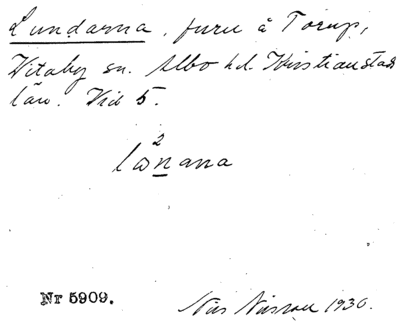 Lundarna, furu å Torup,
Vitaby sn. Albo hd. Kristianstads
län. Vid 5.
2
lωnana
Nr 5909.
Nils Nilsson 1930.